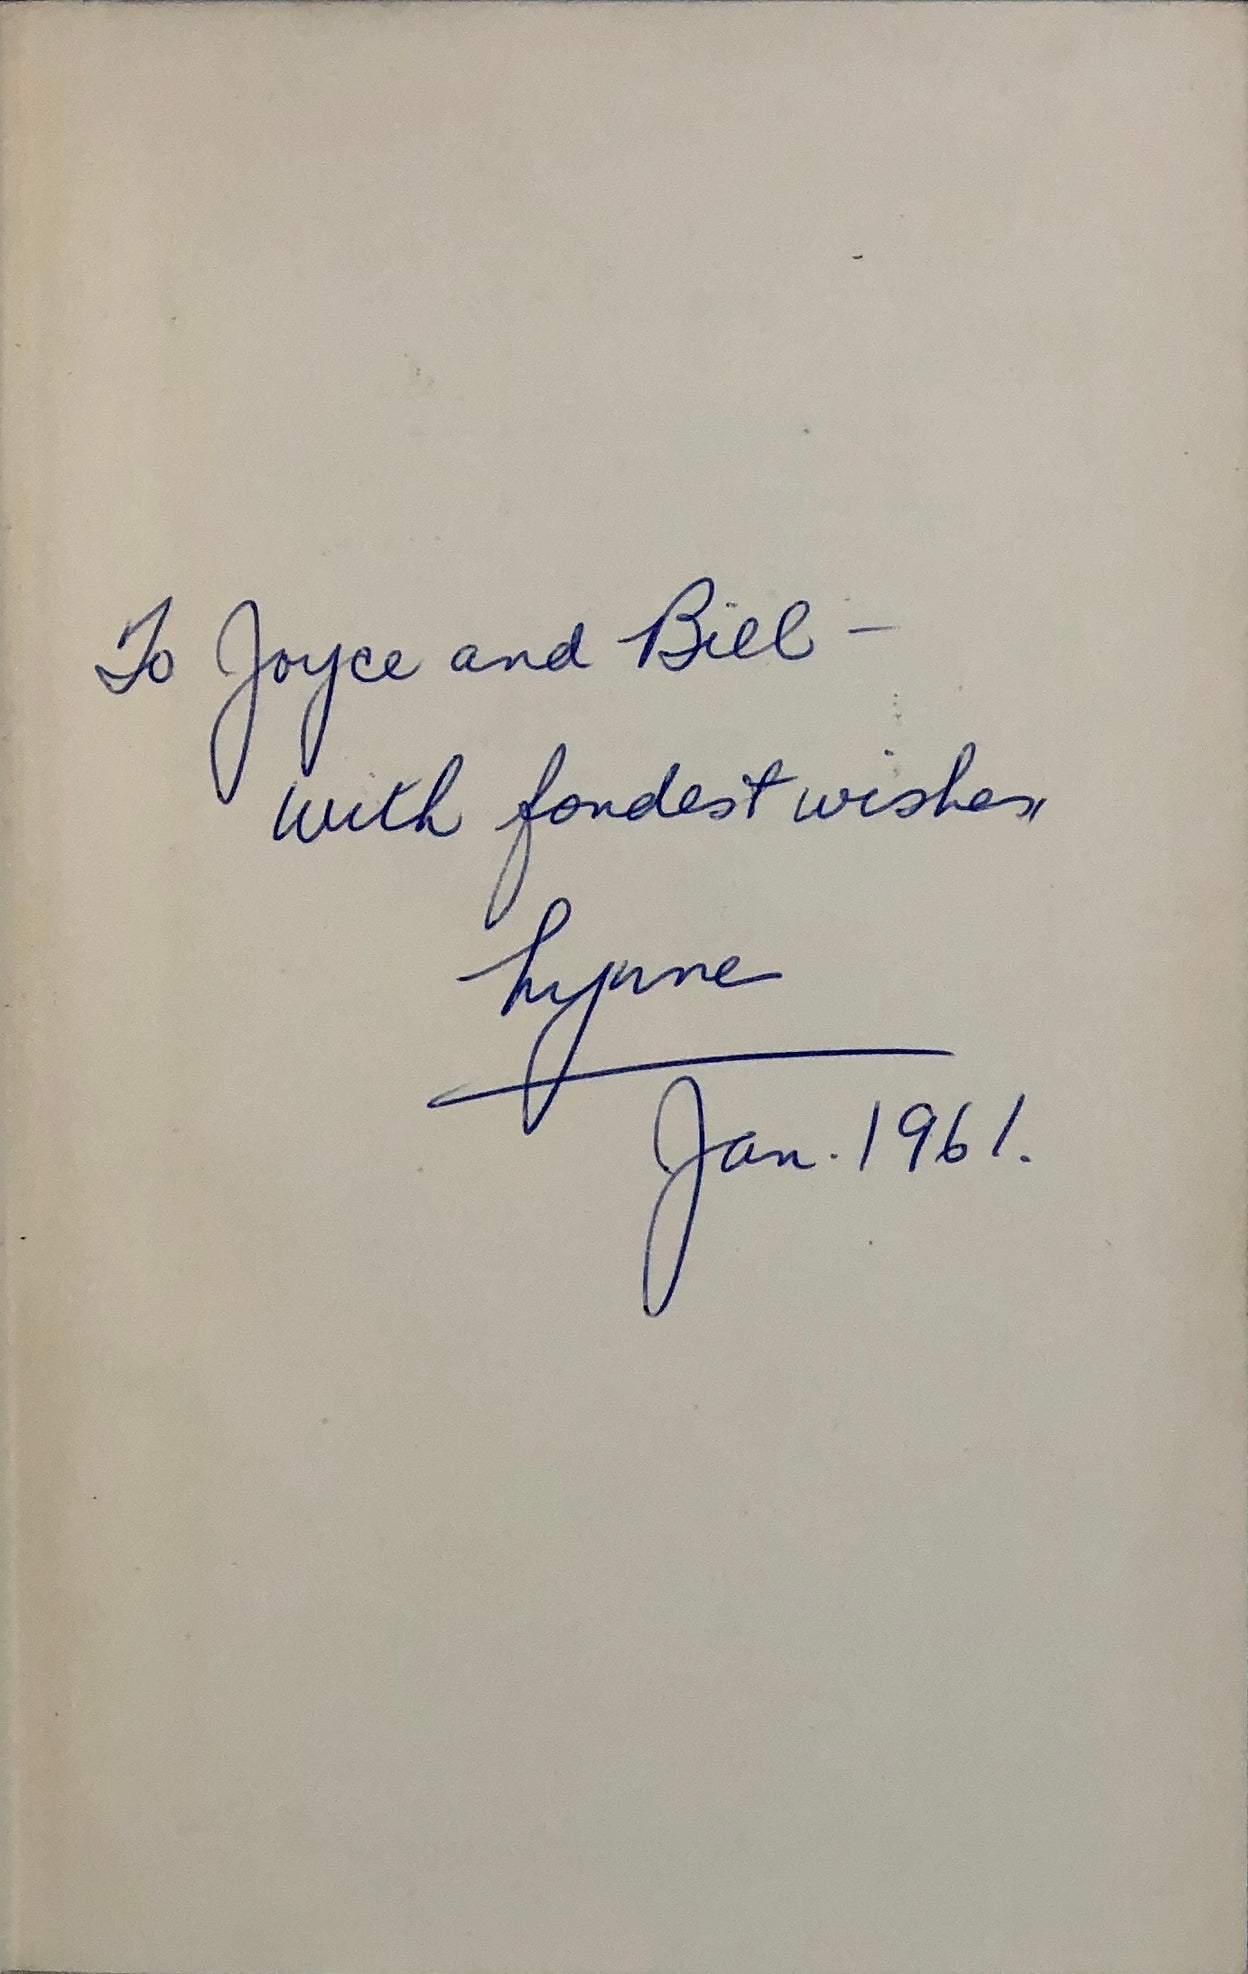 To Joyce and Bill –
with fondest wishes,
Lynne
Jan. 1961.